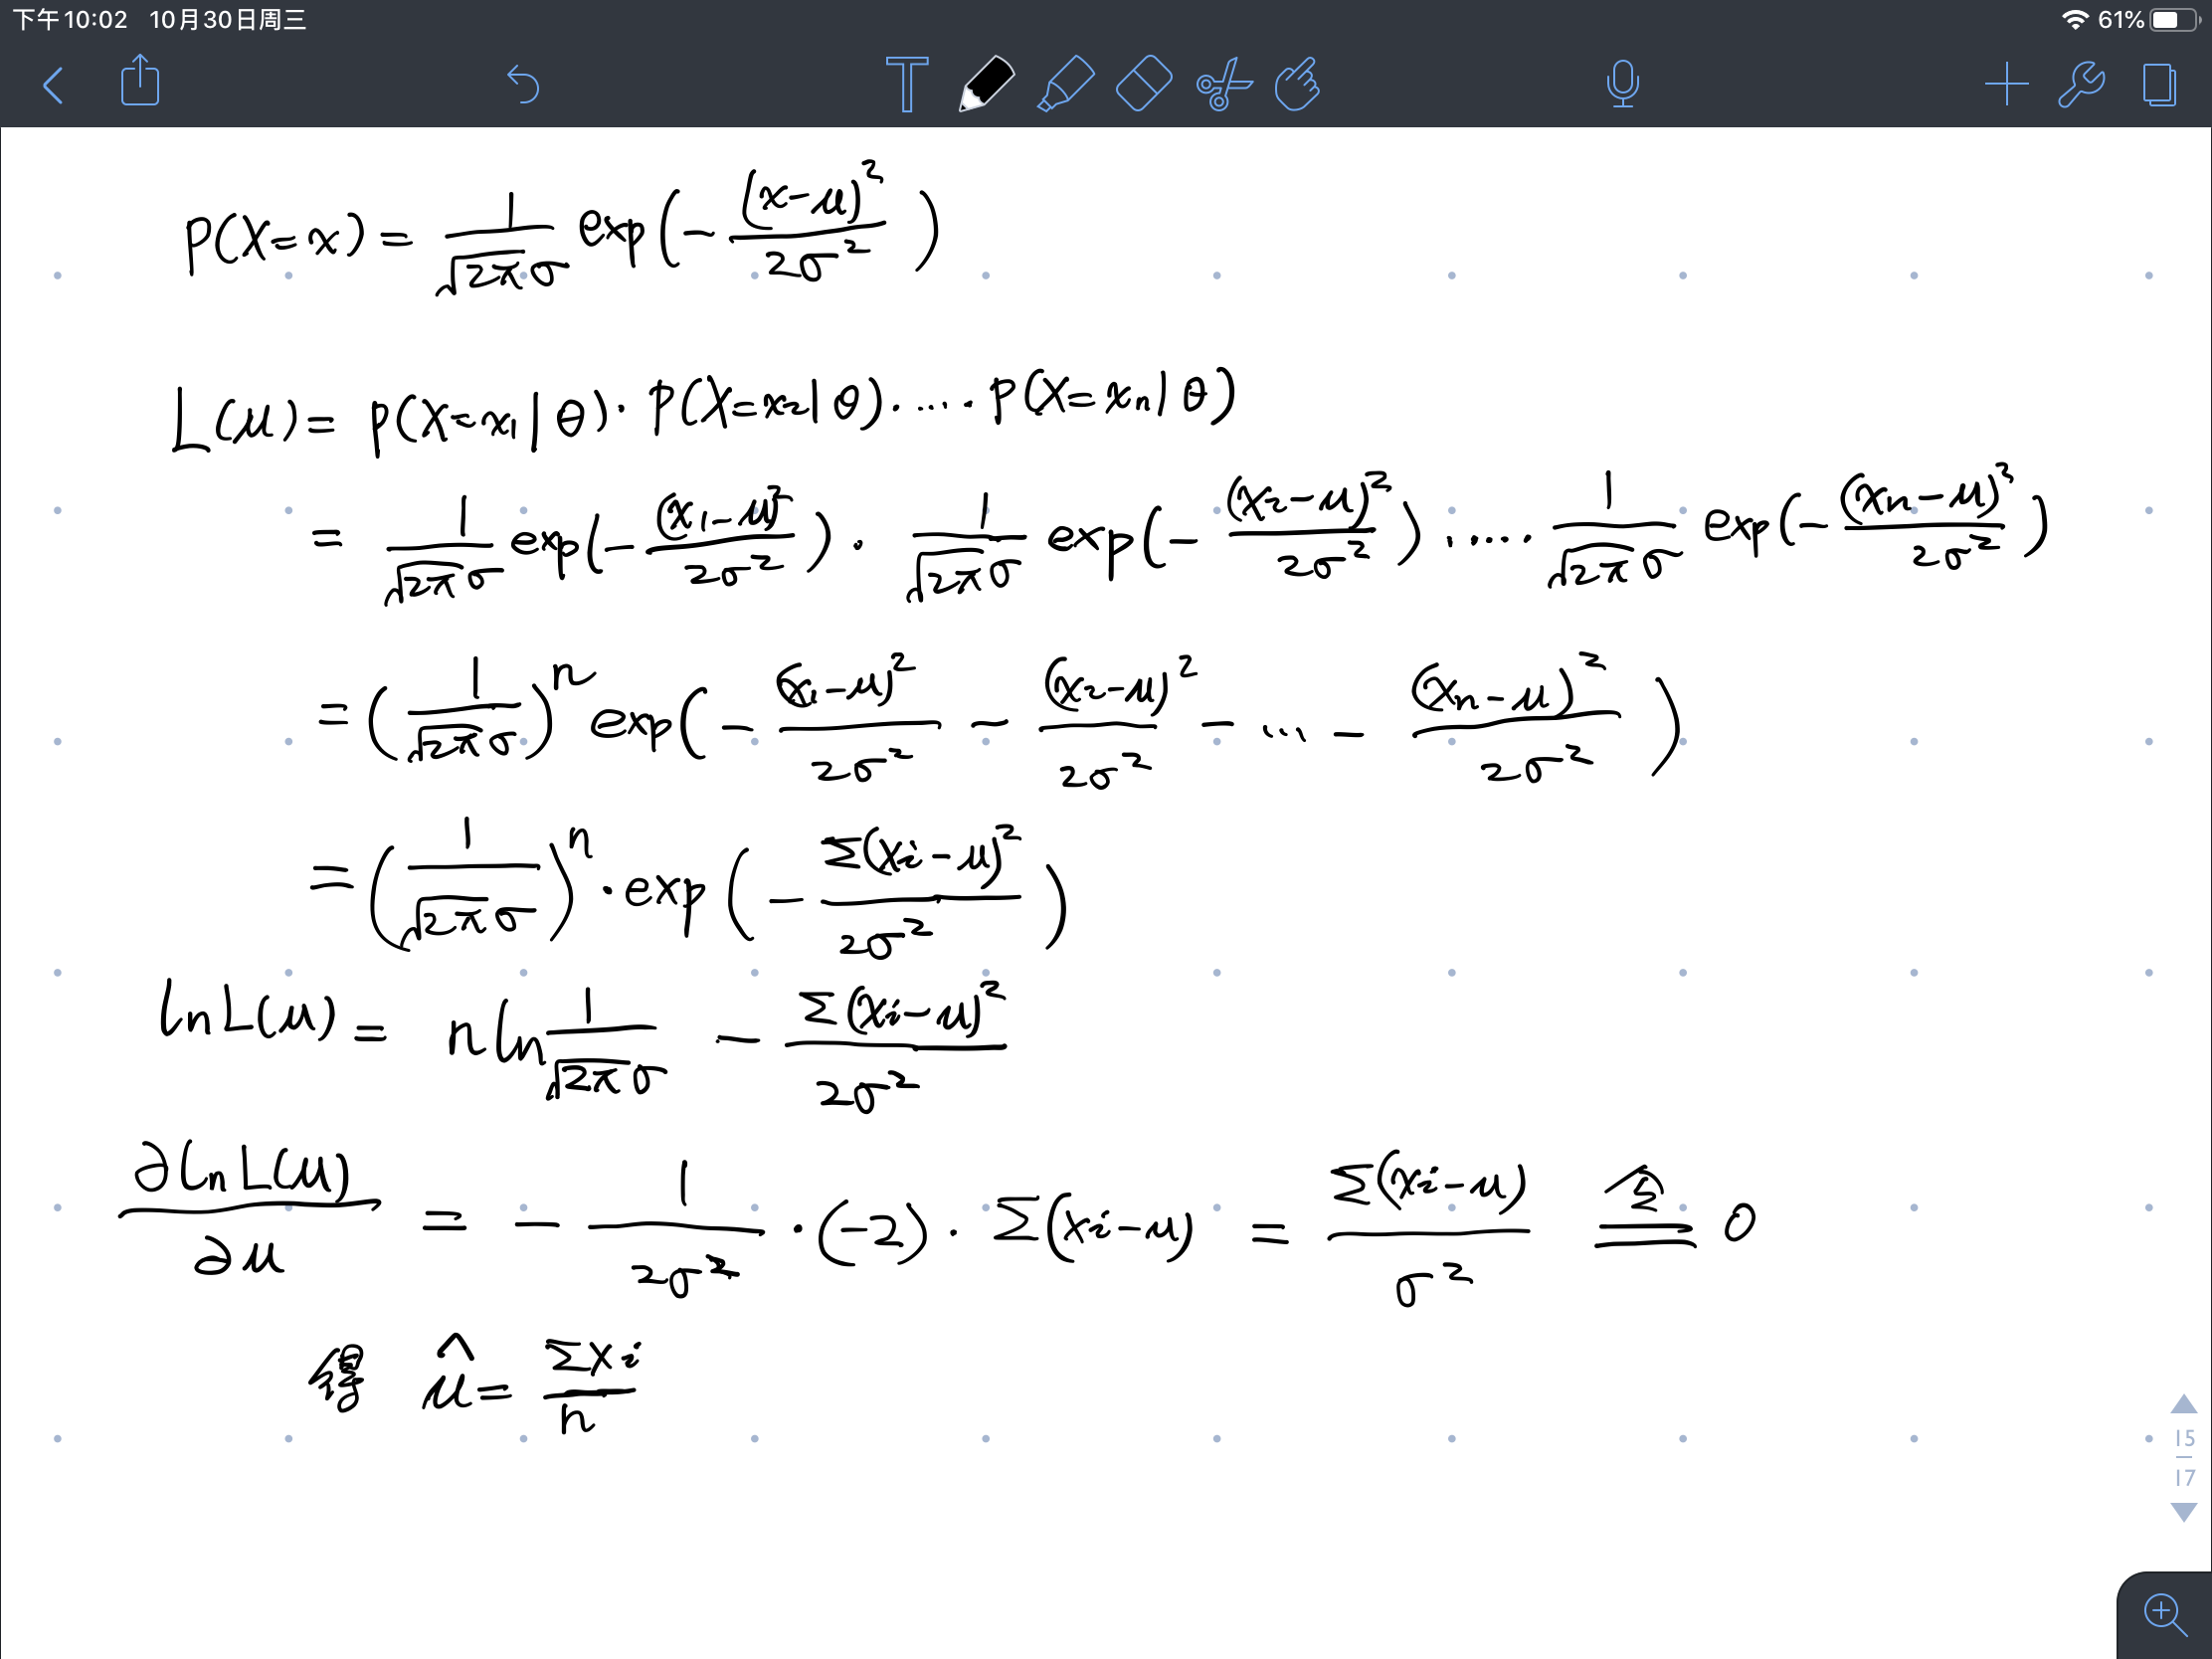 下午10:02 10月30日周三 61%
P(X=x) = 1/(√2π σ) exp(-(x-μ)²/2σ²)
L(μ) = P(X=x₁|θ)·P(X=x₂|θ).....P(X=xₙ|θ)
= 1/(√2π σ) exp(-(x₁-μ)²/2σ²) · 1/(√2π σ) exp(-(x₂-μ)²/2σ²) ..... 1/(√2π σ) exp(-(xₙ-μ)²/2σ²)
= (1/(√2π σ))ⁿ exp(-(x₁-μ)²/2σ² - (x₂-μ)²/2σ² - ... - (xₙ-μ)²/2σ²)
= (1/(√2π σ))ⁿ · exp(-Σ(xᵢ-μ)²/2σ²)
lnL(μ) = n ln 1/(√2π σ) - Σ(xᵢ-μ)²/2σ²
∂lnL(μ)/∂μ = -1/2σ² · (-2) · Σ(xᵢ-μ) = Σ(xᵢ-μ)/σ² 令= 0
得 μ̂ = Σxᵢ/n
15
17